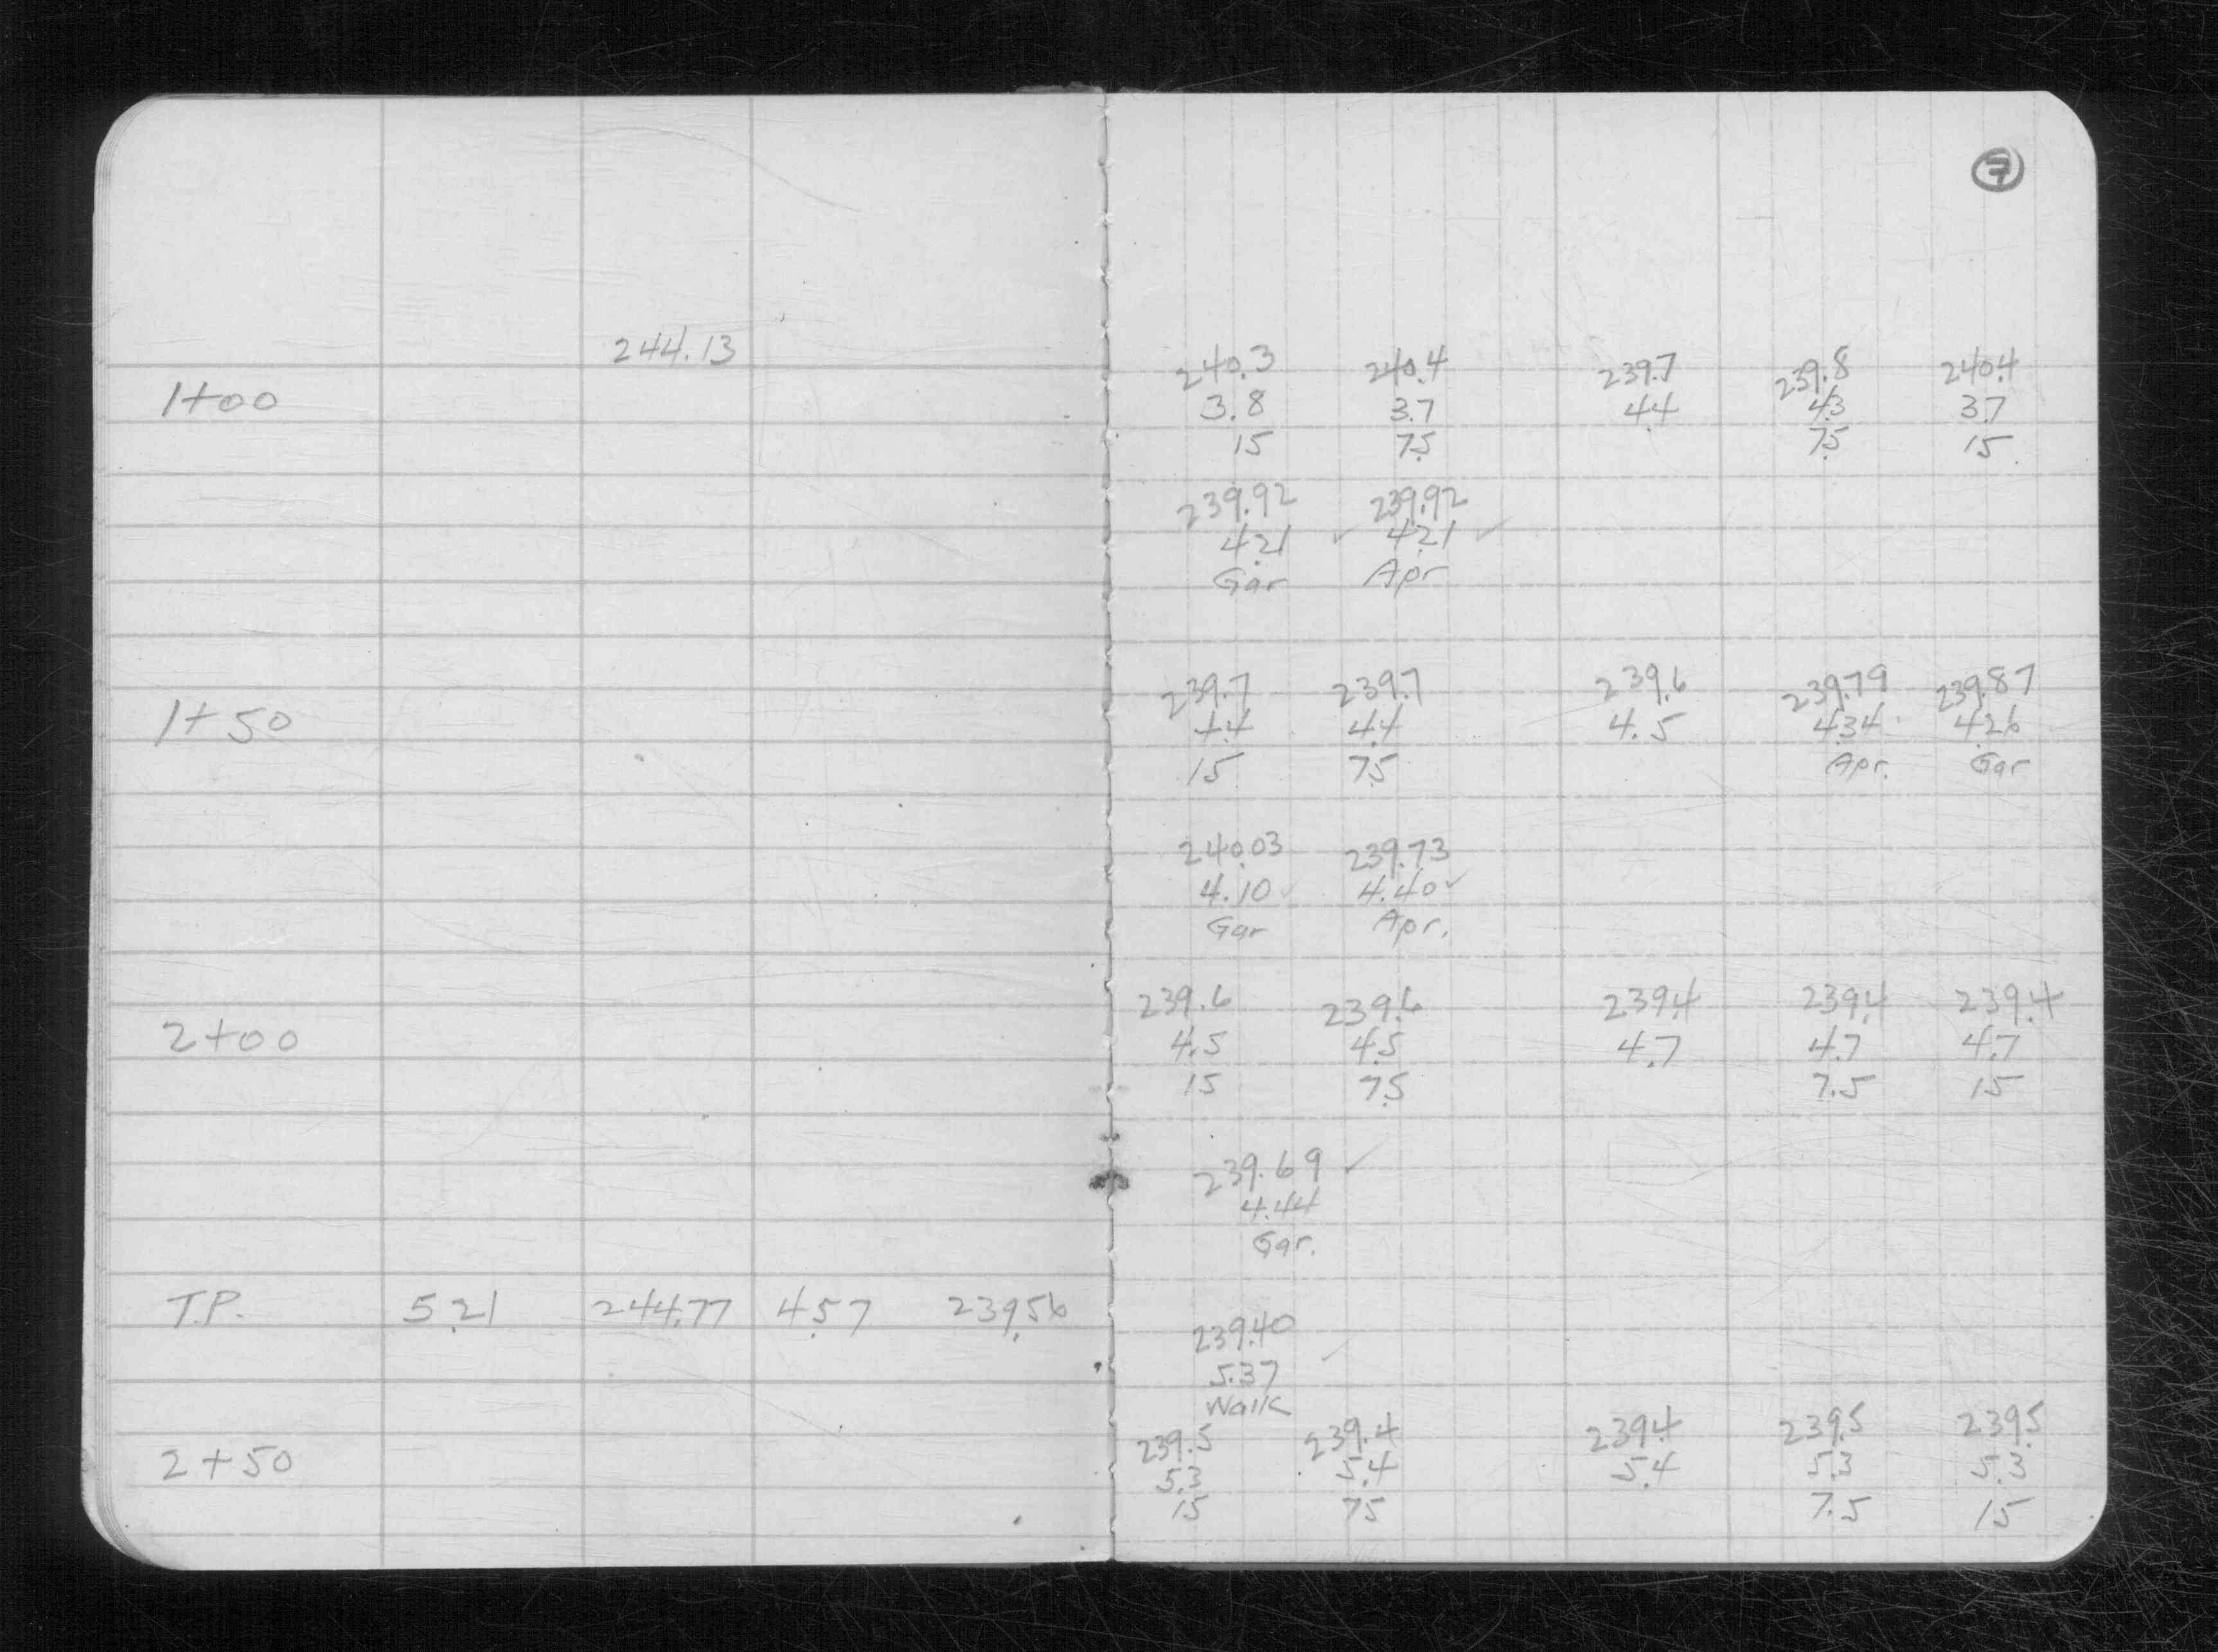 7
244.13
240.3 240.4 239.7 239.8 240.4
1+00 3.8 3.7 4.4 4.3 3.7
15 7.5 7.5 15
239.92 239.92
4.21 ✓ 4.21 ✓
Gar Apr
239.7 239.7 239.6 239.79 239.87
1+50 4.4 4.4 4.5 4.34 4.26
15 7.5 Apr. Gar
240.03 239.73
4.10 ✓ 4.40 ✓
Gar Apr.
239.6 239.6 239.4 239.4 239.4
2+00 4.5 4.5 4.7 4.7 4.7
15 7.5 7.5 15
239.69 ✓
4.44
Gar.
T.P. 5.21 244.77 4.57 239.56
239.40
5.37 ✓
Walk
239.5 239.4 239.4 239.5 239.5
2+50 5.3 5.4 5.4 5.3 5.3
15 7.5 7.5 15